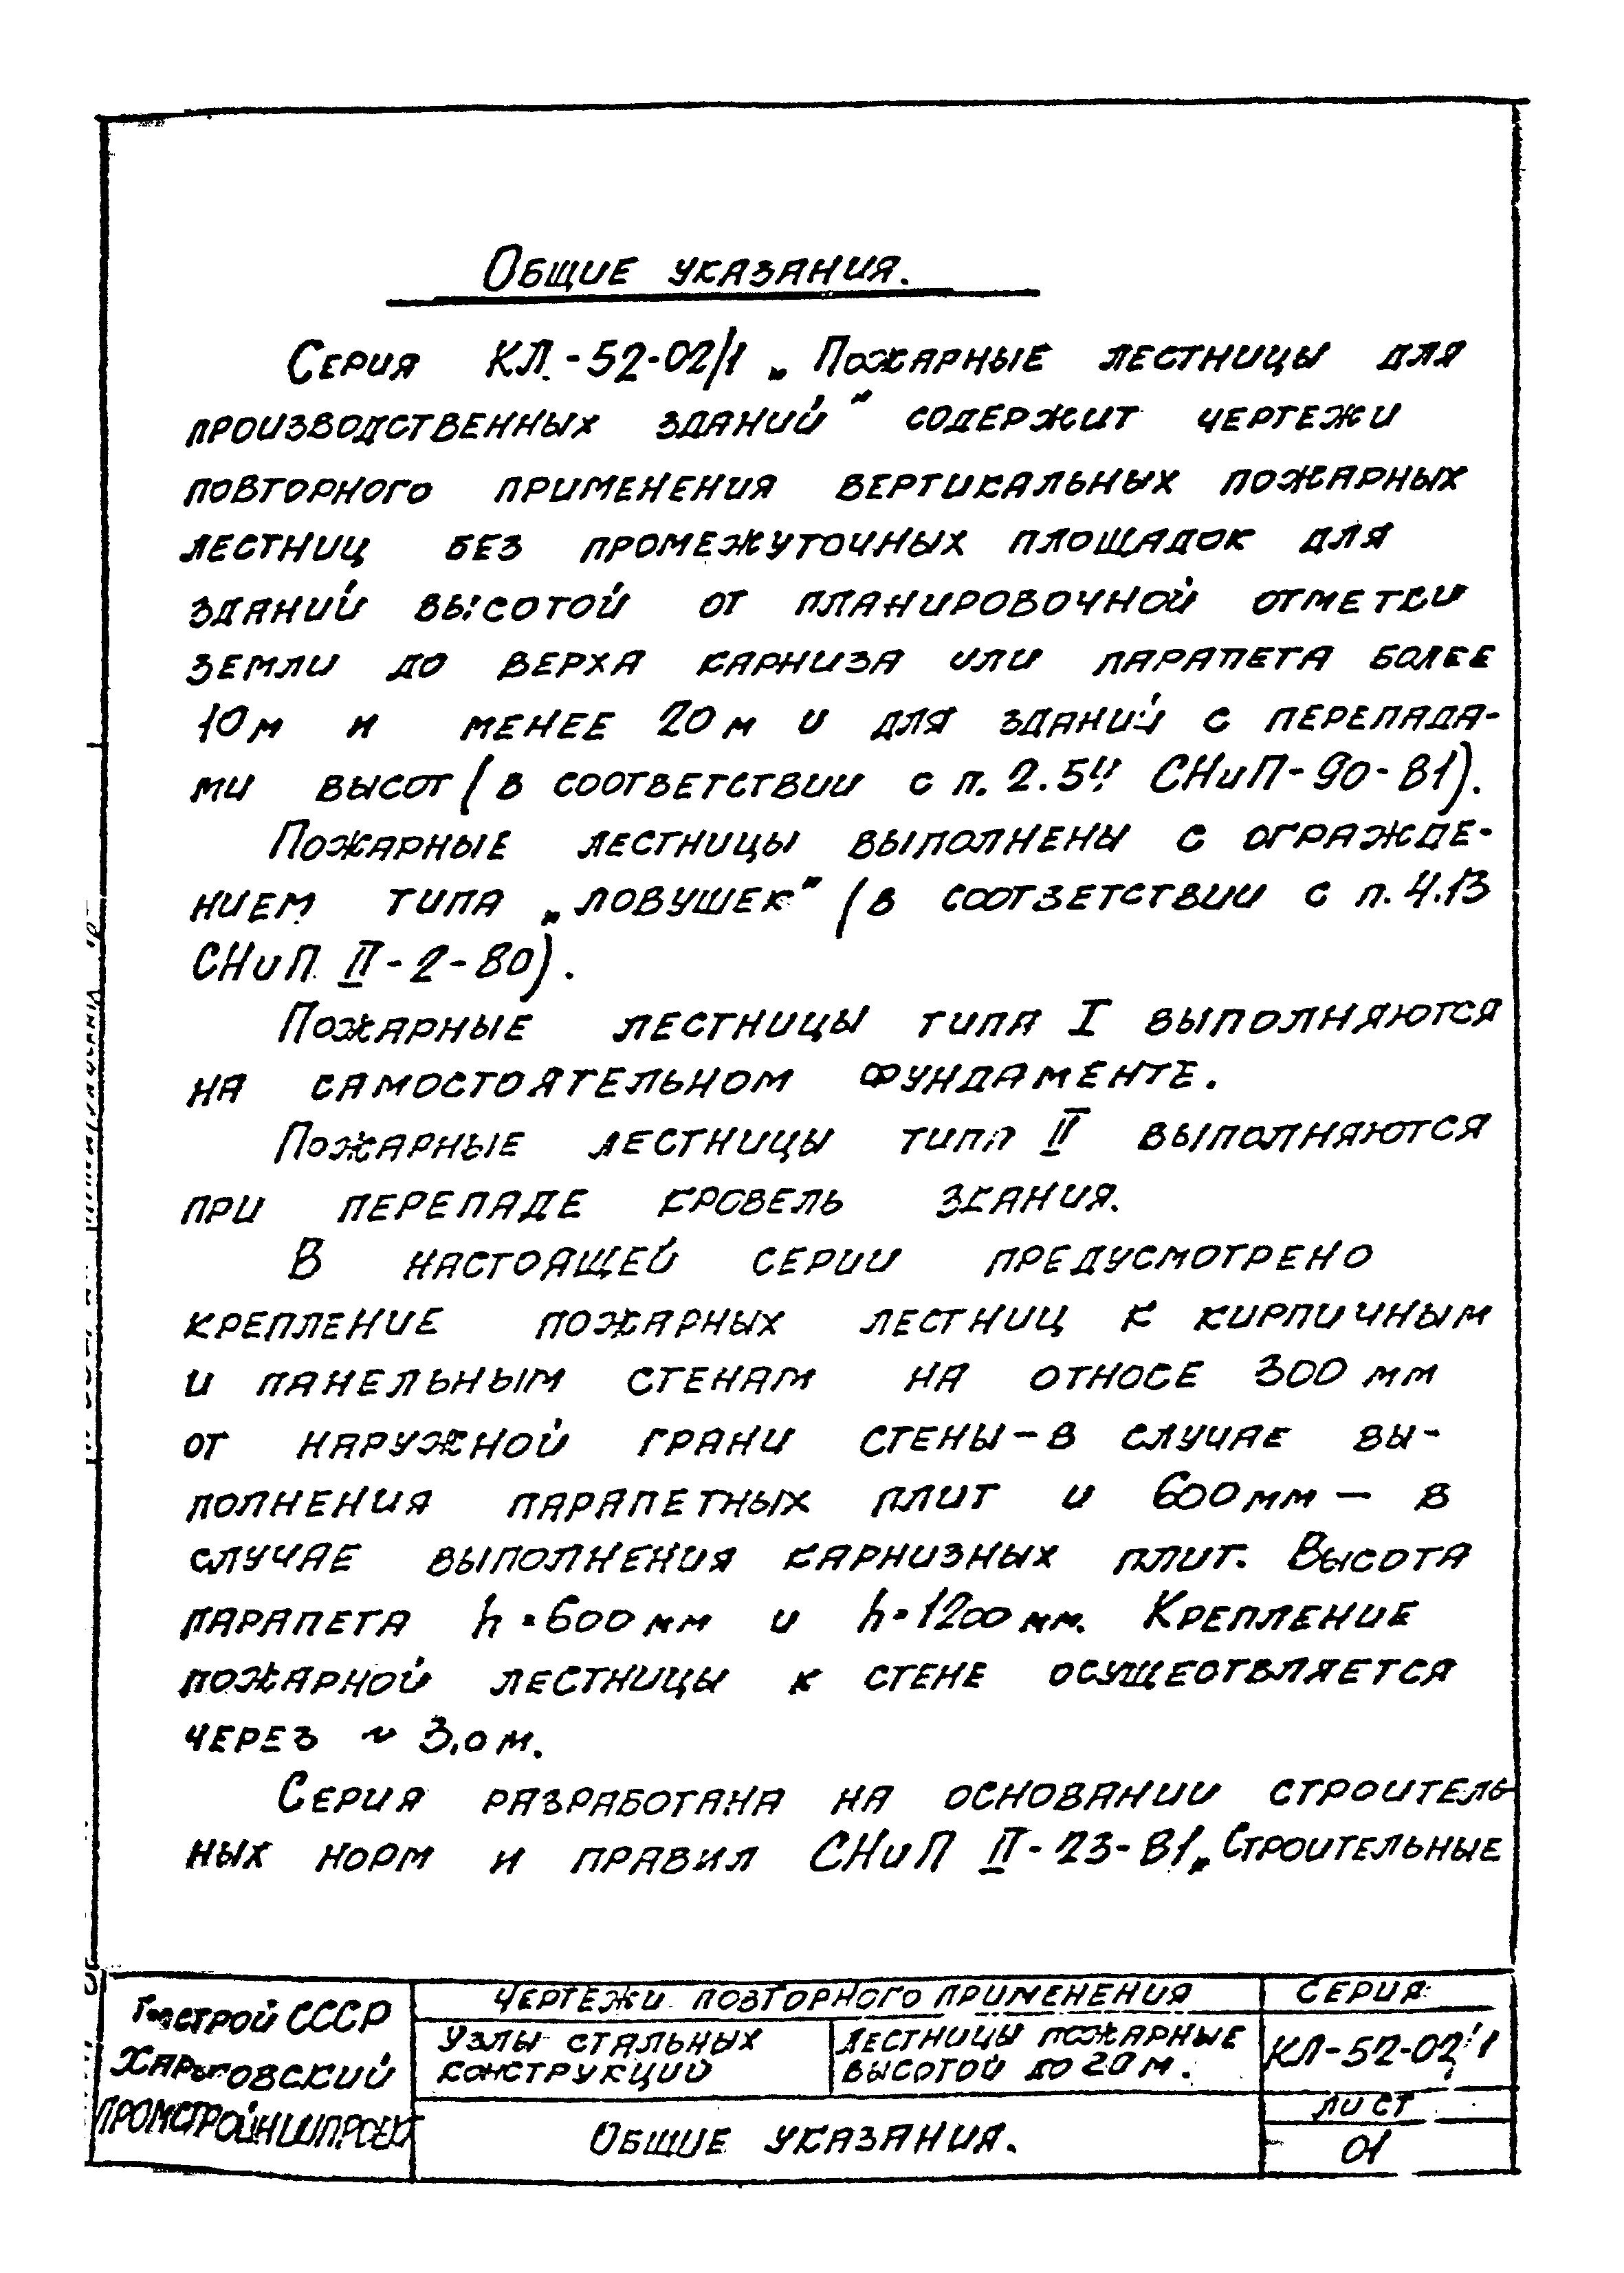 Общие указания.
Серия КЛ-52-02/1 „Пожарные лестницы для
производственных зданий" содержит чертежи
повторного применения вертикальных пожарных
лестниц без промежуточных площадок для
зданий высотой от планировочной отметки
земли до верха карниза или парапета более
10м и менее 20м и для зданий с перепада-
ми высот (в соответствии с п. СНиП-90-81).
Пожарные лестницы выполнены с огражде-
нием типа „ловушек" (в соответствии с п. 4.13
СНиП II-2-80).
Пожарные лестницы типа I выполняются
на самостоятельном фундаменте.
Пожарные лестницы типа II выполняются
при перепаде кровель здания.
В настоящей серии предусмотрено
крепление пожарных лестниц к кирпичным
и панельным стенам на относе 300 мм
от наружной грани стены-в случае вы-
полнения парапетных плит и 600мм — в
случае выполнения карнизных плит. Высота
парапета h=600мм и h=1200мм. Крепление
пожарной лестницы к стене осуществляется
через ~ 3,0м.
Серия разработана на основании строитель
ных норм и правил СНиП II-23-81„Строительные
Госстрой СССР
Харьковский
Промстройниипроект
Чертежи повторного применения
Узлы стальных
конструкций
Лестницы пожарные
высотой до 20м.
Общие указания.
Серия
КЛ-52-02/1
Лист
01